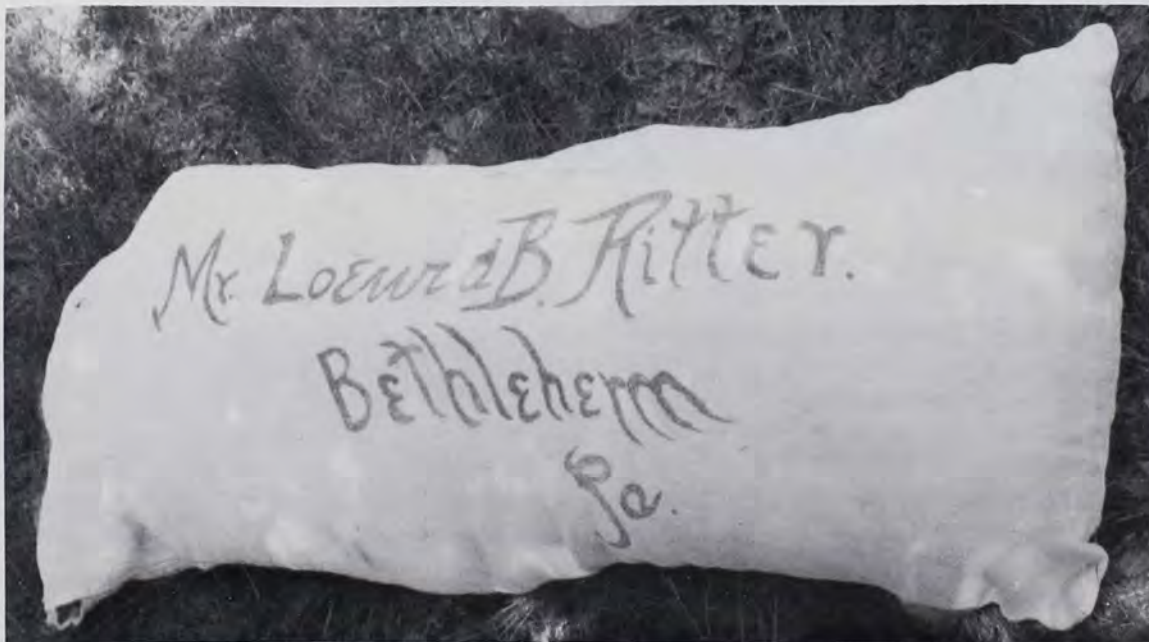 Mr. Loewrd B. Ritter.
Bethleherm
Pa.